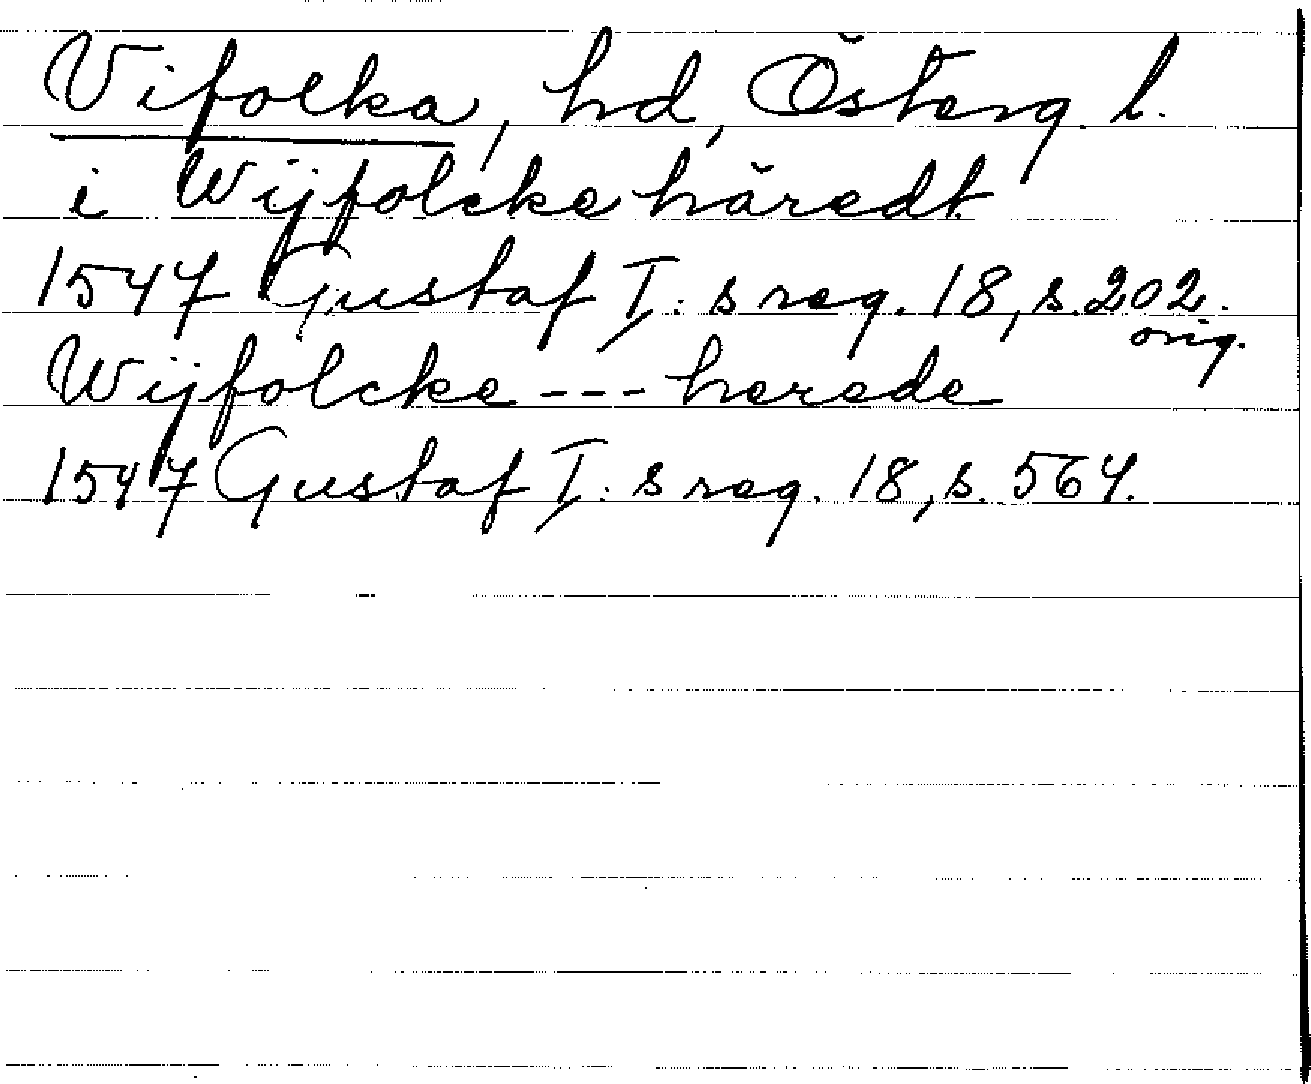 Vifolka, hd, Österg. l.
i Wijfolcke häredt
1547 Gustaf I:s reg. 18, s. 202.
orig.
Wijfolcke --- herede
1547 Gustaf I:s reg. 18, s. 564.